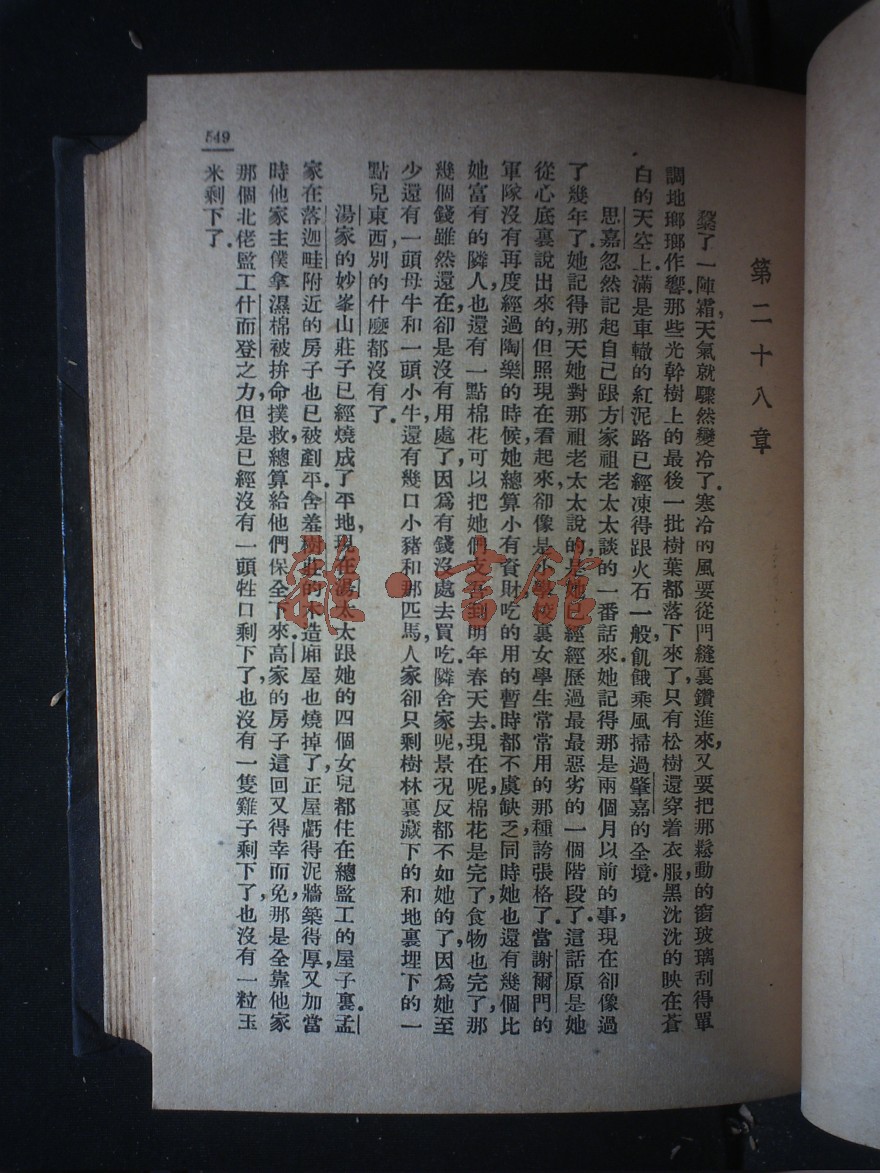 第二十八章
繫了一陣霜，天氣就驟然變冷了。寒冷的風要從門縫裏鑽進來，又要把那鬆動的窗玻璃刮得單
調地瑯瑯作響。那些光幹樹上的最後一批樹葉都落下來了，只有松樹還穿着衣服，黑沈沈的映在蒼
白的天空上。滿是車轍的紅泥路已經凍得跟火石一般，飢餓乘風掃過肇嘉的全境。
思嘉忽然記起自己跟方家祖老太太談的一番話來。她記得那是兩個月以前的事，現在卻像過
了幾年了。她記得那天她對那祖老太太說的，是她已經經歷過最最惡劣的一個階段了。這話原是她
從心底裏說出來的，但照現在看起來，卻像是小學校裏女學生常常用的那種誇張格了。當謝爾門的
軍隊沒有再度經過陶樂的時候，她總算小有資財，吃的用的暫時都不虞缺乏，同時她也還有幾個比
她富有的隣人，也還有一點棉花可以把她們支吾到明年春天去。現在呢，棉花是完了，食物也完了，那
幾個錢雖然還在，卻是沒有用處了，因爲有錢沒處去買吃。隣舍家呢，景况反都不如她的了，因爲她至
少還有一頭母牛和一頭小牛，還有幾口小豬和那匹馬，人家卻只剩樹林裏藏下的和地裏埋下的一
點兒東西，別的什麽都沒有了。
湯家的妙峯山莊子已經燒成了平地，現在湯太太跟她的四個女兒都住在總監工的屋子裏。孟
家在落迦畦附近的房子也已被剷平。舍羞樹莊的木造廂屋也燒掉了，正屋虧得泥牆築得厚，又加當
時他家主僕拿濕棉被拚命撲救，總算給他們保全下來。高家的房子這回又得幸而免，那是全靠他家
那個北佬監工什而登之力，但是已經沒有一頭牲口剩下了，也沒有一隻雞子剩下了，也沒有一粒玉
米剩下了。
549
雜·書館